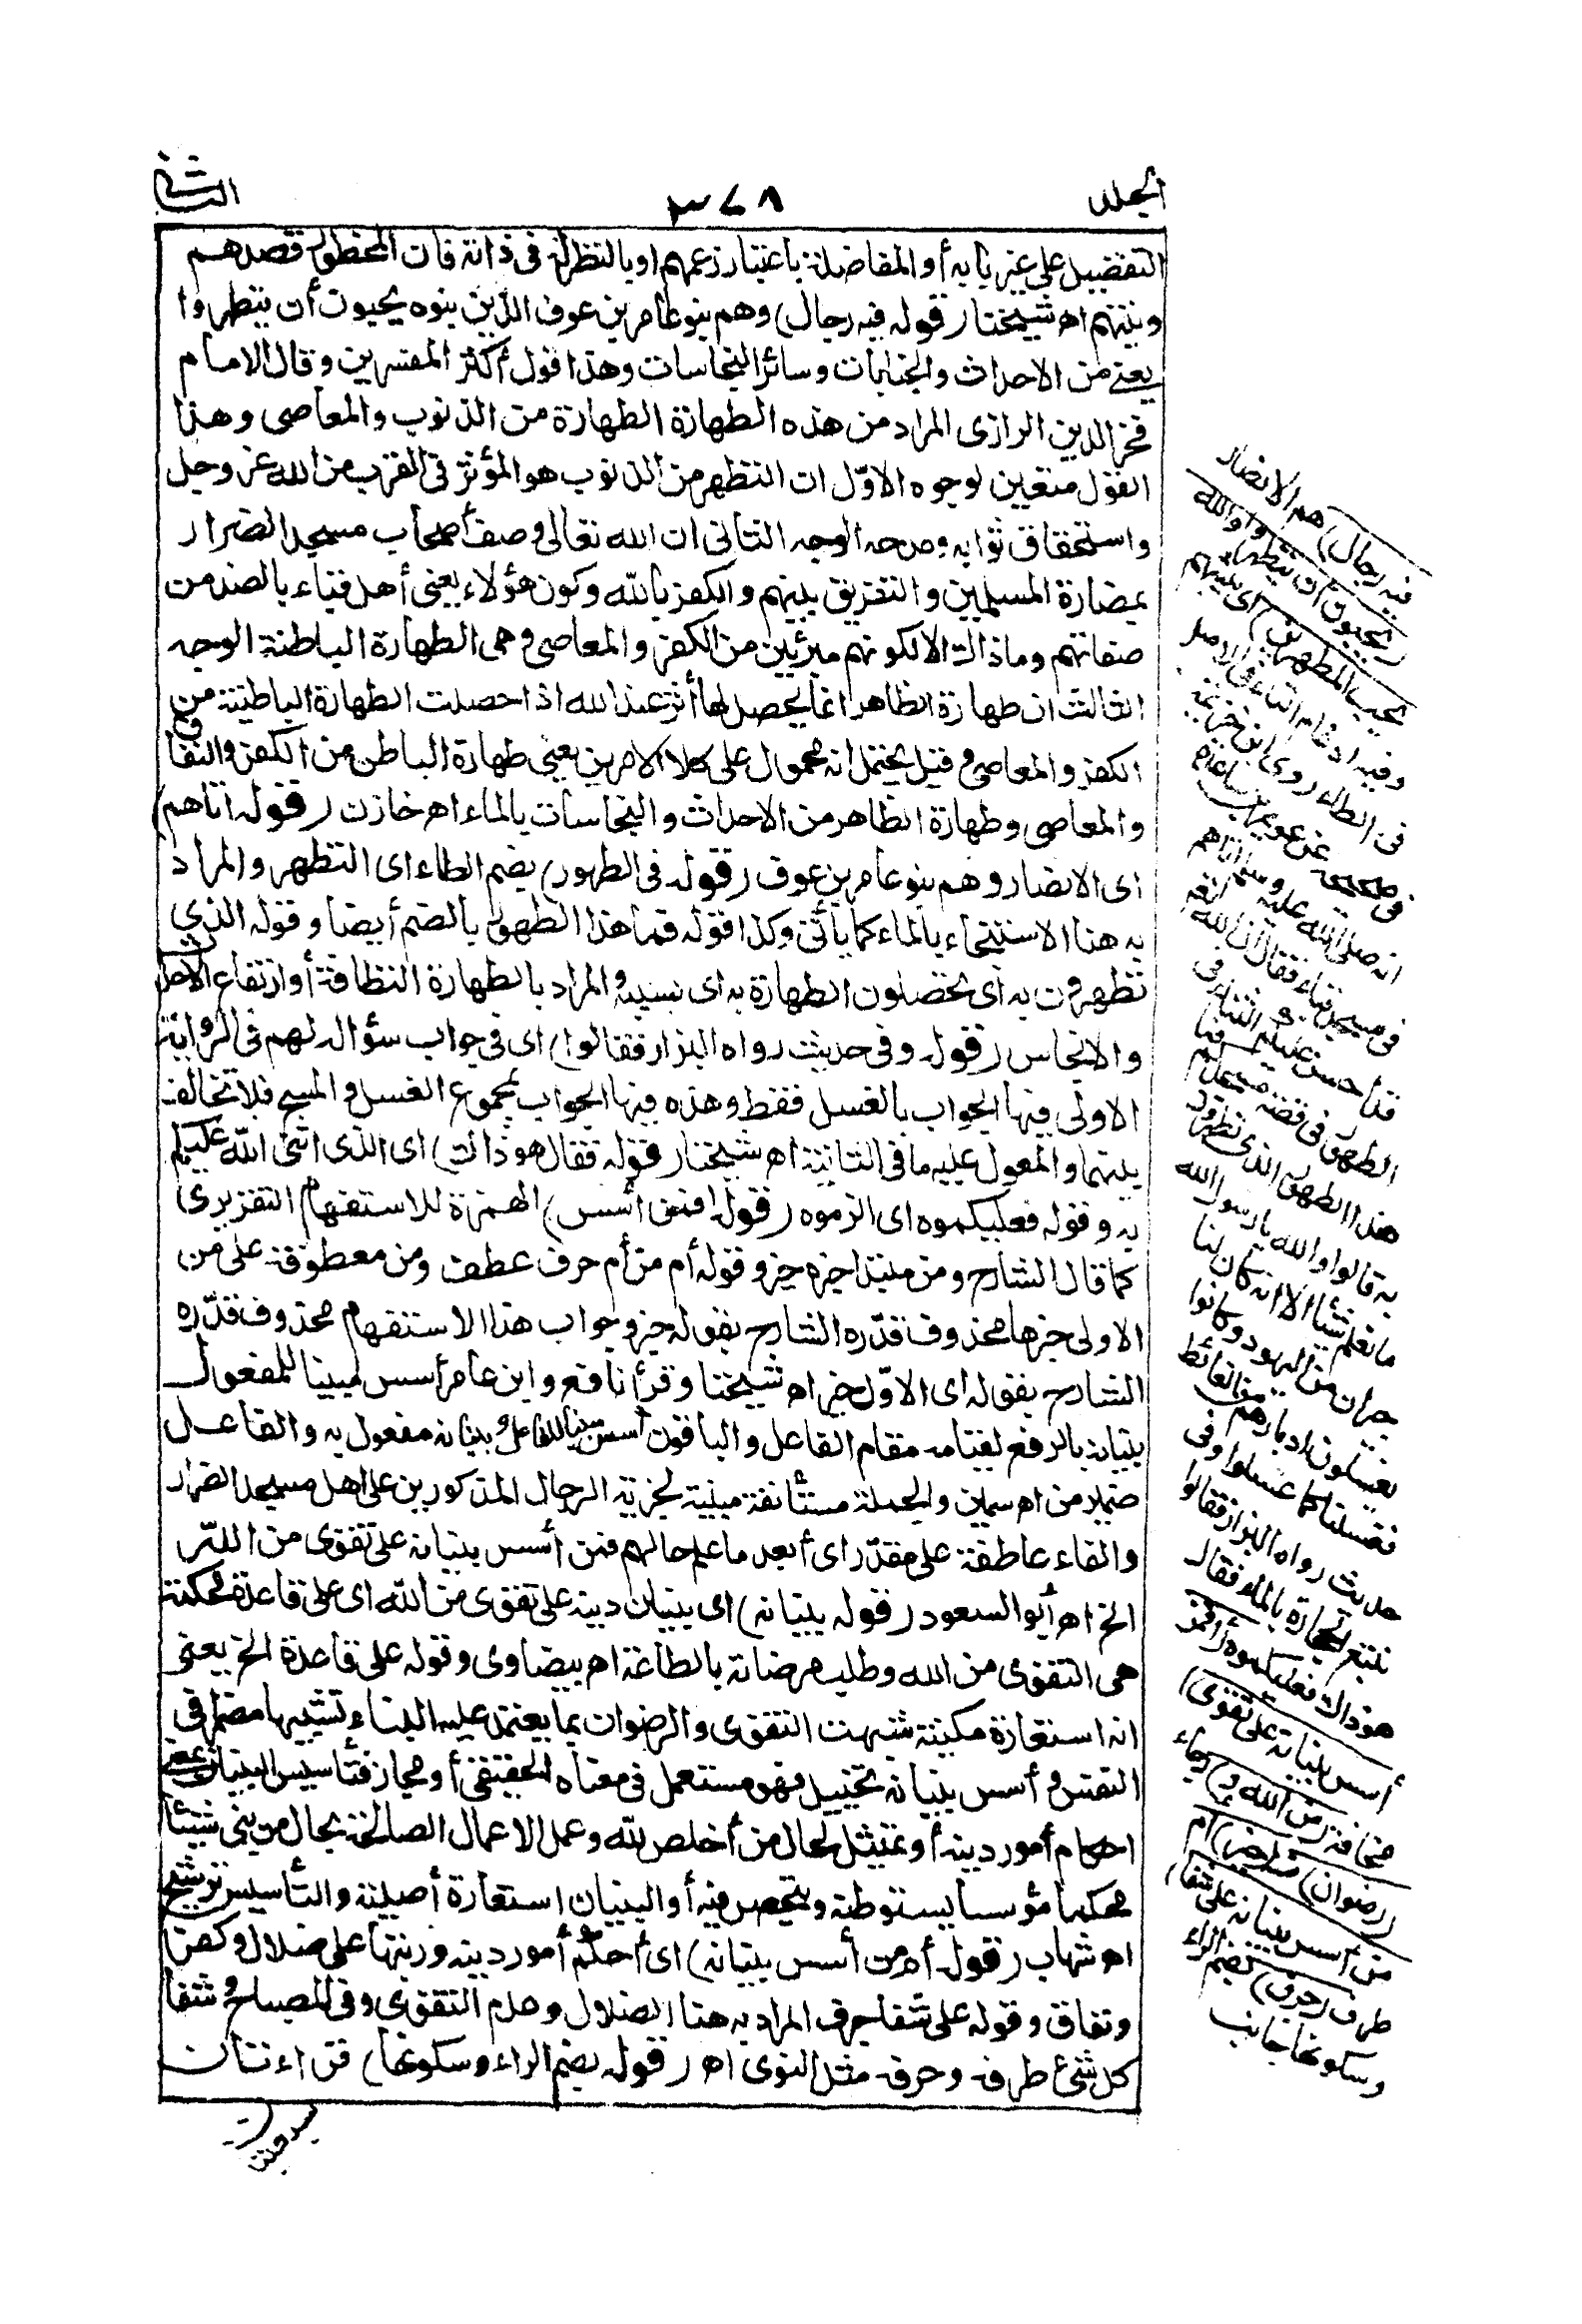 الجلد
٣٧٨
الثاني
التفضيل على غير بابه أو المفاضلة باعتبار زعمهم او بالنظر له في ذاته فان المحظور قصدهم
ونيتهم اه شيخنا (قوله فيه رجال) وهم بنو عامر بن عوف الذين بنوه يحبون أن يتطهروا
يعني من الاحداث والجنابات وسائر النجاسات وهذا قول أكثر المفسرين وقال الامام
فخر الدين الرازي المراد من هذه الطهارة الطهارة من الذنوب والمعاصي وهذا
القول متعين لوجوه الاوّل ان التطهر من الذنوب هو المؤثر في القرب من الله عز وجل
واستحقاق ثوابه ومدحه الوجه الثاني ان الله تعالى وصف أصحاب مسجد الضرار
بمضارة المسلمين والتفريق بينهم والكفر بالله وكون هؤلاء يعني أهل قباء بالضد من
صفاتهم وما ذاك الا لكونهم مبرئين من الكفر والمعاصي وهي الطهارة الباطنة الوجه
الثالث ان طهارة الظاهر انما يحصل لها أثر عند الله اذا حصلت الطهارة الباطنة من
الكفر والمعاصي وقيل يحتمل انه محمول على كلا الامرين يعني طهارة الباطن من الكفر والنفاق
والمعاصي وطهارة الظاهر من الاحداث والنجاسات بالماء اه خازن (قوله اتاهم)
اى الانصار وهم بنو عامر بن عوف (قوله في الطهور) بضم الطاء اى التطهر والمراد
به هنا الاستنجاء بالماء كما يأتي وكذا قوله فما هذا الطهور بالضم أيضا وقوله الذي
تطهرون به اى تحصلون الطهارة به اى بسببه والمراد بالطهارة النظافة أو ارتفاع الاحداث
والانجاس (قوله وفي حديث رواه البزار فقالوا) اى في جواب سؤاله لهم في الرواية
الاولى فيها الجواب بالغسل فقط وهذه فيها الجواب بمجموع الغسل والمسح فلا تخالف
بينهما والمعول عليه ما في الثانية اه شيخنا (قوله فقال هو ذاك) اى الذى اثنى الله عليكم
به وقوله فعليكموه اى الزموه (قوله افمن أسس) الهمزة للاستفهام التقريرى
كما قال الشارح ومن مبتدا خبره خير وقوله أم من أم حرف عطف ومن معطوفة على من
الاولى خبرها محذوف قدّره الشارح بقوله خير وجواب هذا الاستفهام محذوف قدّره
الشارح بقوله اى الاوّل خير اه شيخنا وقرأ نافع وابن عامر أسس مبنيا للمفعول
بنيانه بالرفع لقيامه مقام الفاعل والباقون أسس مبنيا للفاعل و بنيانه مفعول به والفاعل
ضمير من اه سمين والجملة مستأنفة مبينة لخيرية الرجال المذكورين على اهل مسجد الضرار
والفاء عاطفة على مقدّر اى أبعد ما علم حالهم فمن أسس بنيانه على تقوى من الله
الخ اه أبو السعود (قوله بنيانه) اى بنيان دينه على تقوى من الله اى على قاعدة محكمة
هى التقوى من الله وطلب مرضاته بالطاعة اه بيضاوى وقوله على قاعدة الخ يعني
انه استعارة مكنية شبهت التقوى والرضوان بما يعتمد عليه البناء تشبيها مضمرا في
النفس وأسس بنيانه تخييل فهو مستعمل في معناه الحقيقي أو مجاز فتأسيس البنيان بمعنى
احكام أمور دينه أو تمثيل لحال من أخلص لله وعمل الاعمال الصالحة بحال من بنى شيئا
محكما مؤسسا يستوطنه ويتحصن فيه أو البنيان استعارة أصلية والتأسيس ترشيح
اه شهاب (قوله أم من أسس بنيانه) اى أحكم أمور دينه ورتبها على ضلال وكفر
ونفاق وقوله على شفا جرف المراد به هنا الضلال وعدم التقوى وفي المصباح وشفا
كل شئ طرفه وحرفه مثل النوى اه (قوله بضم الراء وسكونها) قراءتان
سبعيتان
فيه رجال) هم الانصار
(يحبون ان يتطهروا والله
يحب المطهرين) اى يثيبهم
وفيه ادغام التاء في الاصل
في الطاء روى ابن خزيمة
في صحيحه عن عويمر بن ساعدة
انه صلى الله عليه وسلم اتاهم
في مسجد قباء فقال ان الله تعالى
قد أحسن عليكم الثناء في
الطهور في قصة مسجدكم فما
هذا الطهور الذي تطهرون
به قالوا والله يا رسول الله
ما نعلم شيأ الا انه كان لنا
جيران من اليهود وكانوا
يغسلون ادبارهم من الغائط
فغسلنا كما غسلوا وفي
حديث رواه البزار فقالوا
نتبع الحجارة بالماء فقال
هو ذاك فعليكموه (افمن
أسس بنيانه على تقوى)
مخافة (من الله و) رجاء
(رضوان) منه (خير) ام
من أسس بنيانه على شفا)
طرف (جرف) بضم الراء
وسكونها جانب